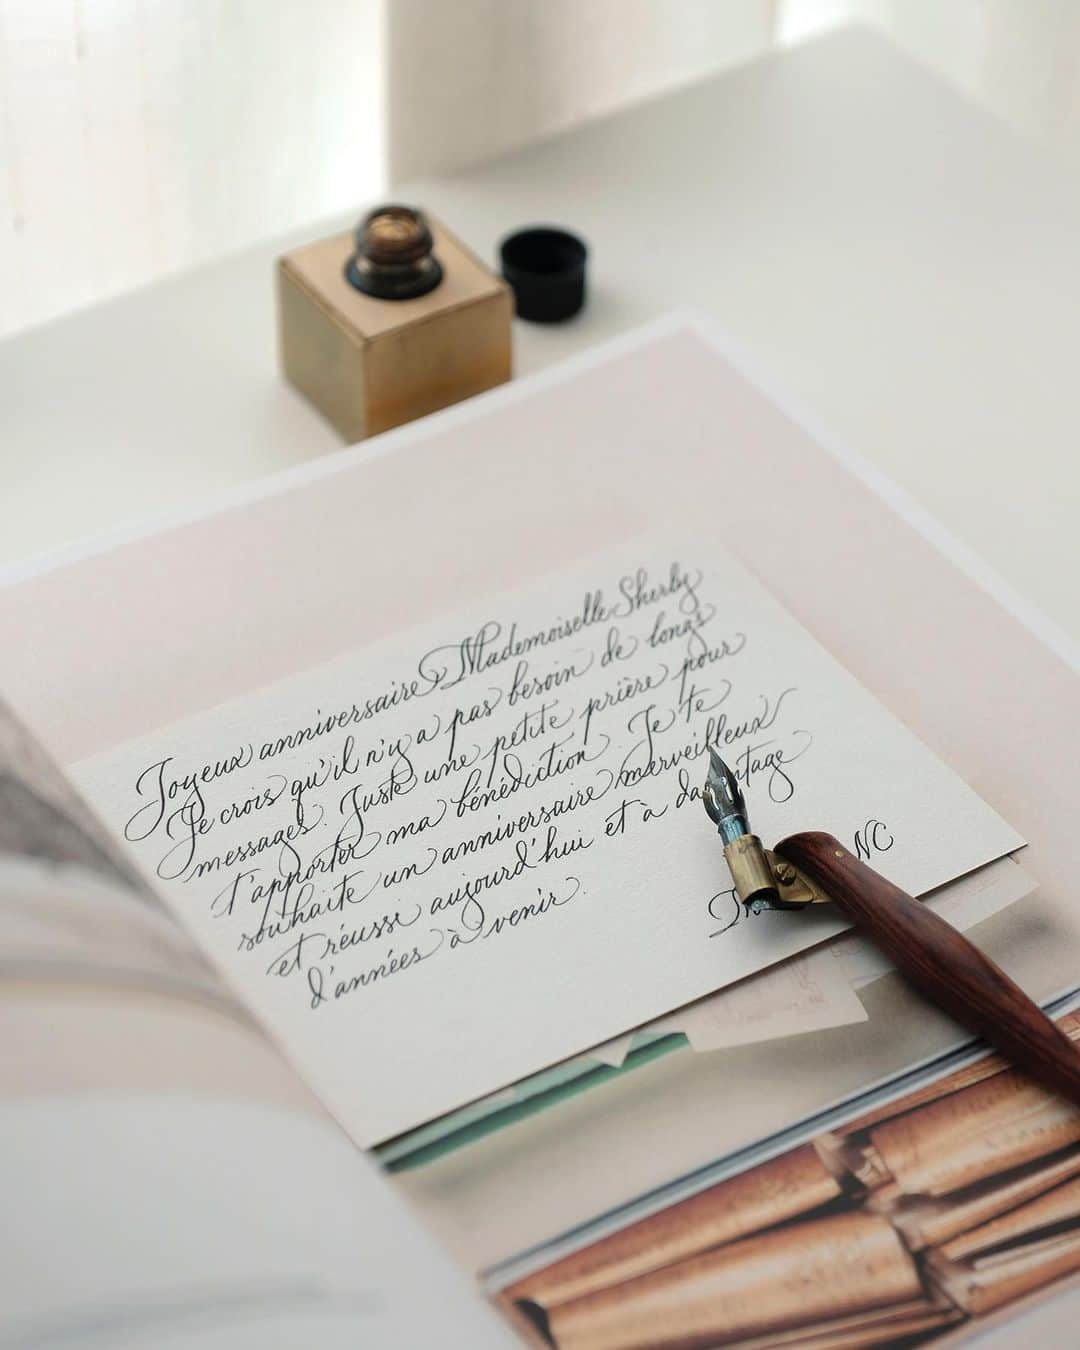 Joyeux anniversaire, Mademoiselle Sherly
Je crois qu'il n'y a pas besoin de longs
messages. Juste une petite prière pour
t'apporter ma bénédiction. Je te
souhaite un anniversaire merveilleux
et réussi aujourd'hui et à davantage
d'années à venir.
NC